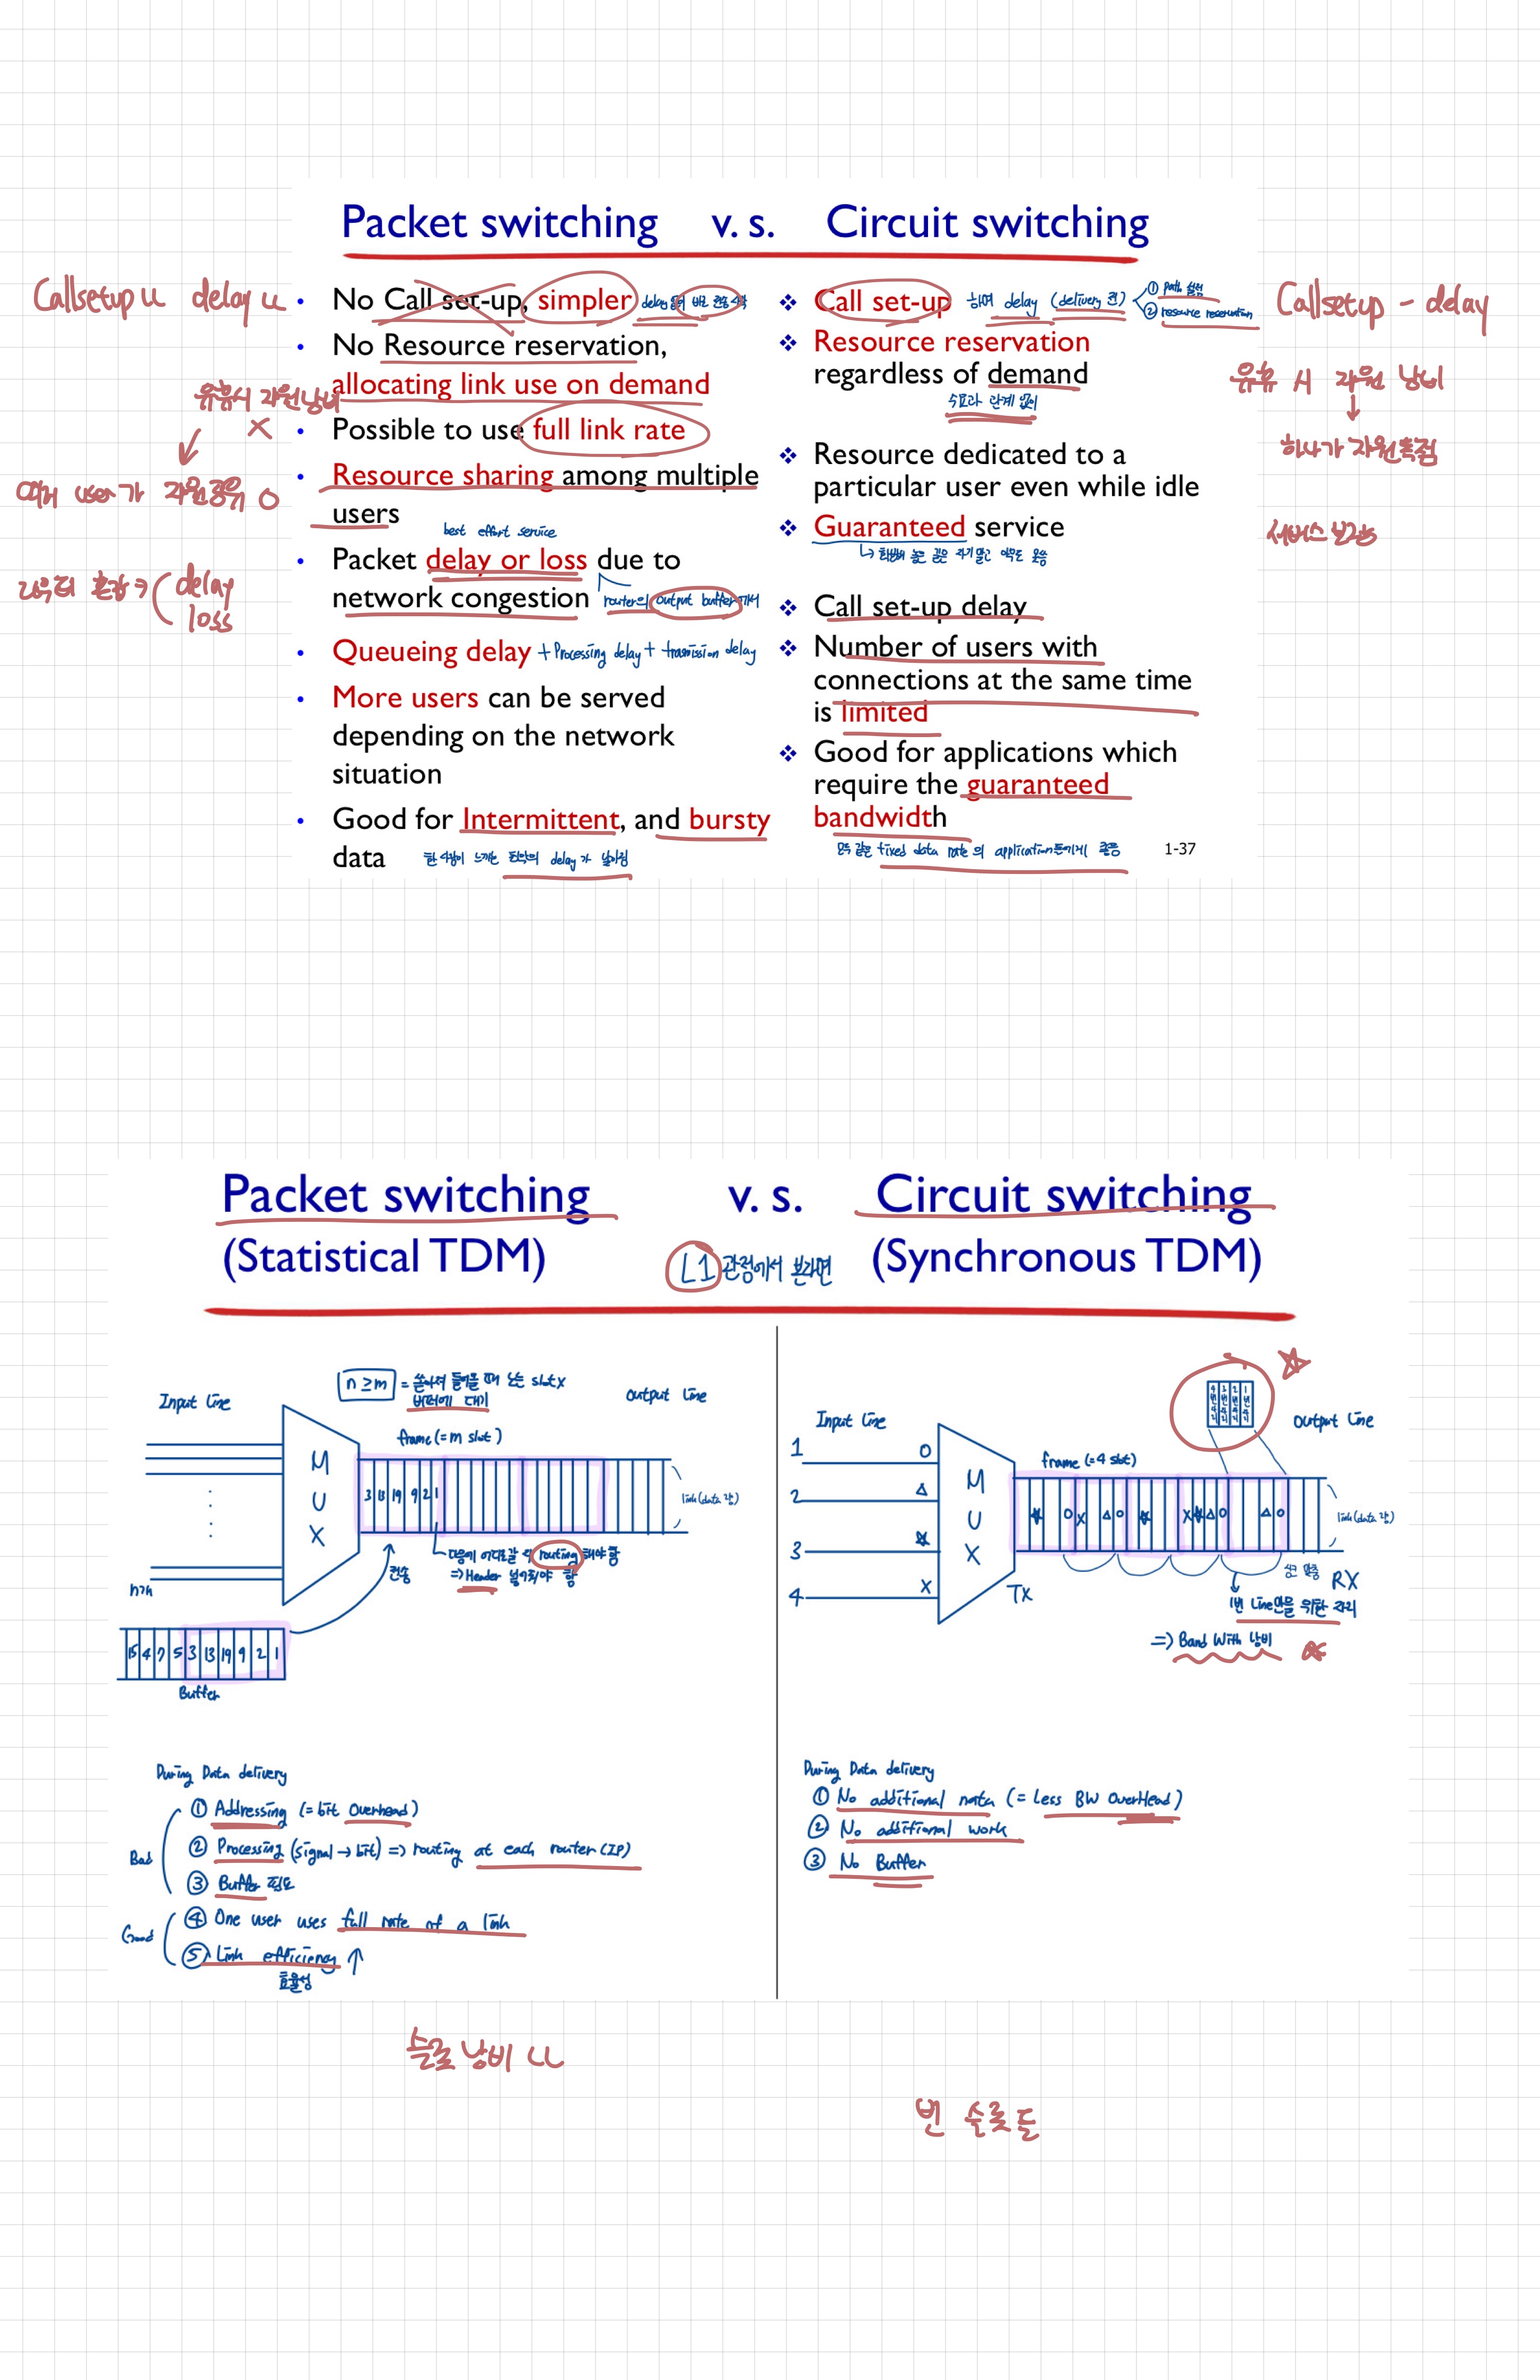 Packet switching v. s. Circuit switching
Callsetup u delay u
• No Call set-up, simpler
• No Resource reservation,
allocating link use on demand
유휴시 자원낭비
X
• Possible to use full link rate
• Resource sharing among multiple
users
여러 user가 자원공유 O
best effort service
• Packet delay or loss due to
network congestion
router의 output buffer에서
delay
loss
• Queueing delay + Processing delay + trasmission delay
• More users can be served
depending on the network
situation
• Good for Intermittent, and bursty
data
❖ Call set-up 하여 delay (delivery 전)
① path 설정
② resource reservation
Callsetup - delay
❖ Resource reservation
regardless of demand
수요와 관계 없이
유휴 시 자원 낭비
↓
하나가 자원독점
❖ Resource dedicated to a
particular user even while idle
❖ Guaranteed service
서비스 보장
❖ Call set-up delay
❖ Number of users with
connections at the same time
is limited
❖ Good for applications which
require the guaranteed
bandwidth
fixed data rate의 application들에게 좋음
1-37
Packet switching v. s. Circuit switching
(Statistical TDM) L1 관점에서 본라면 (Synchronous TDM)
n ≥ m = 쏟아져 들어올 때 남는 slot x
버퍼에 대기
Input line
output line
frame (= m slot)
M
U
X
3 13 19 9 2 1
link (data 강)
다음에 어디로갈 지 routing 해야 함
=> Header 붙여줘야 함
전송
15 4 7 5 3 13 19 9 2 1
Buffer
During Data delivery
Bad
① Addressing (= bit overhead)
② Processing (signal → bit) => routing at each router (IP)
③ Buffer 필요
Good
④ One user uses full rate of a link
⑤ Link efficiency ↑
효율성
Input line
output line
1 O
2 △
3 ☆
4 X
M
U
X
frame (= 4 slot)
☆ O X △ O ☆ X ☆ △ O △ O
link (data 강)
TX
RX
1번 Line만을 위한 자리
=> Band With 낭비
During Data delivery
① No additional nata (= less BW OverHead)
② No additional work
③ No Buffer
슬롯 낭비 UU
빈 슬롯들